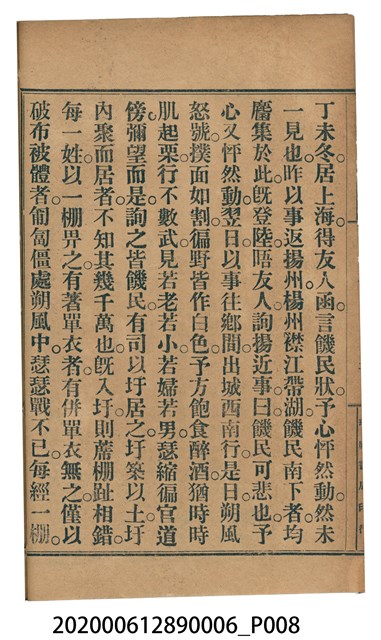 丁未冬。居上海。得友人函言饑民狀。予心怦然動。然未
一見也。昨以事返揚州。揚州襟江帶湖。饑民南下者。均
麕集於此。旣登陸。晤友人詢揚近事。曰饑民可悲也。予
心又怦然動。翌日以事往鄉間。出城西南行。是日朔風
怒號。撲面如割。徧野皆作白色。予方飽食醉酒。猶時時
肌起栗。行不數武。見若老若小若婦若男。瑟縮徧官道
傍。彌望而是。詢之皆饑民。有司以圩居之。圩築以土。圩
內聚而居者。不知其幾千萬也。旣入圩。則蘆棚趾相錯。
每一姓以一棚畀之。有著單衣者。有併單衣無之。僅以
破布被體者。匍匐僵處朔風中。瑟瑟戰不已。每經一棚。
202000612890006_P008